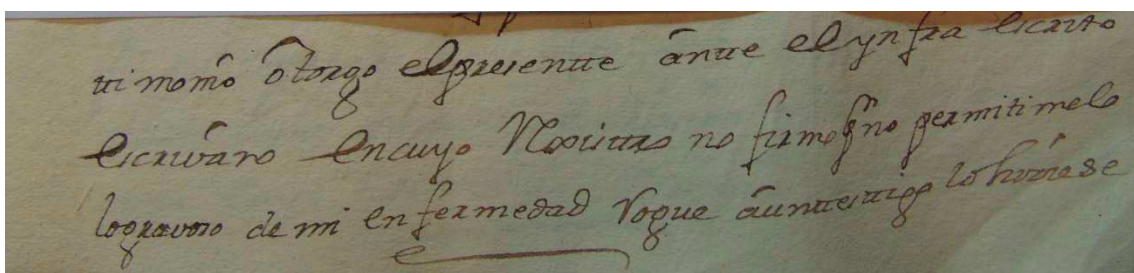 timomo otorgo el presente ante el ynfra escrito
escrivano en cuyo Rexistro no firmo pr no permitirmelo
lo gravoso de mi enfermedad rogue a un testigo lo hiziese